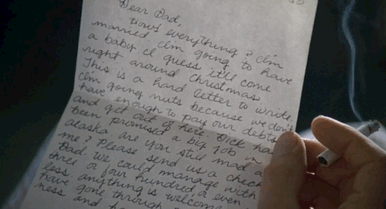 Dear Dad,
How's everything? I'm
married, I'm going to have
a baby. I guess it'll come
right around Christmas.
This is a hard letter to write.
I'm going nuts because we don't
have enough to pay our debts
and get out of here. Dick has
been promised a big job in
Alaska. Are you still mad at
me? Please send us a check
Dad. We could manage with
three or four hundred or even
less. Anything is welcome
have gone through
ness and